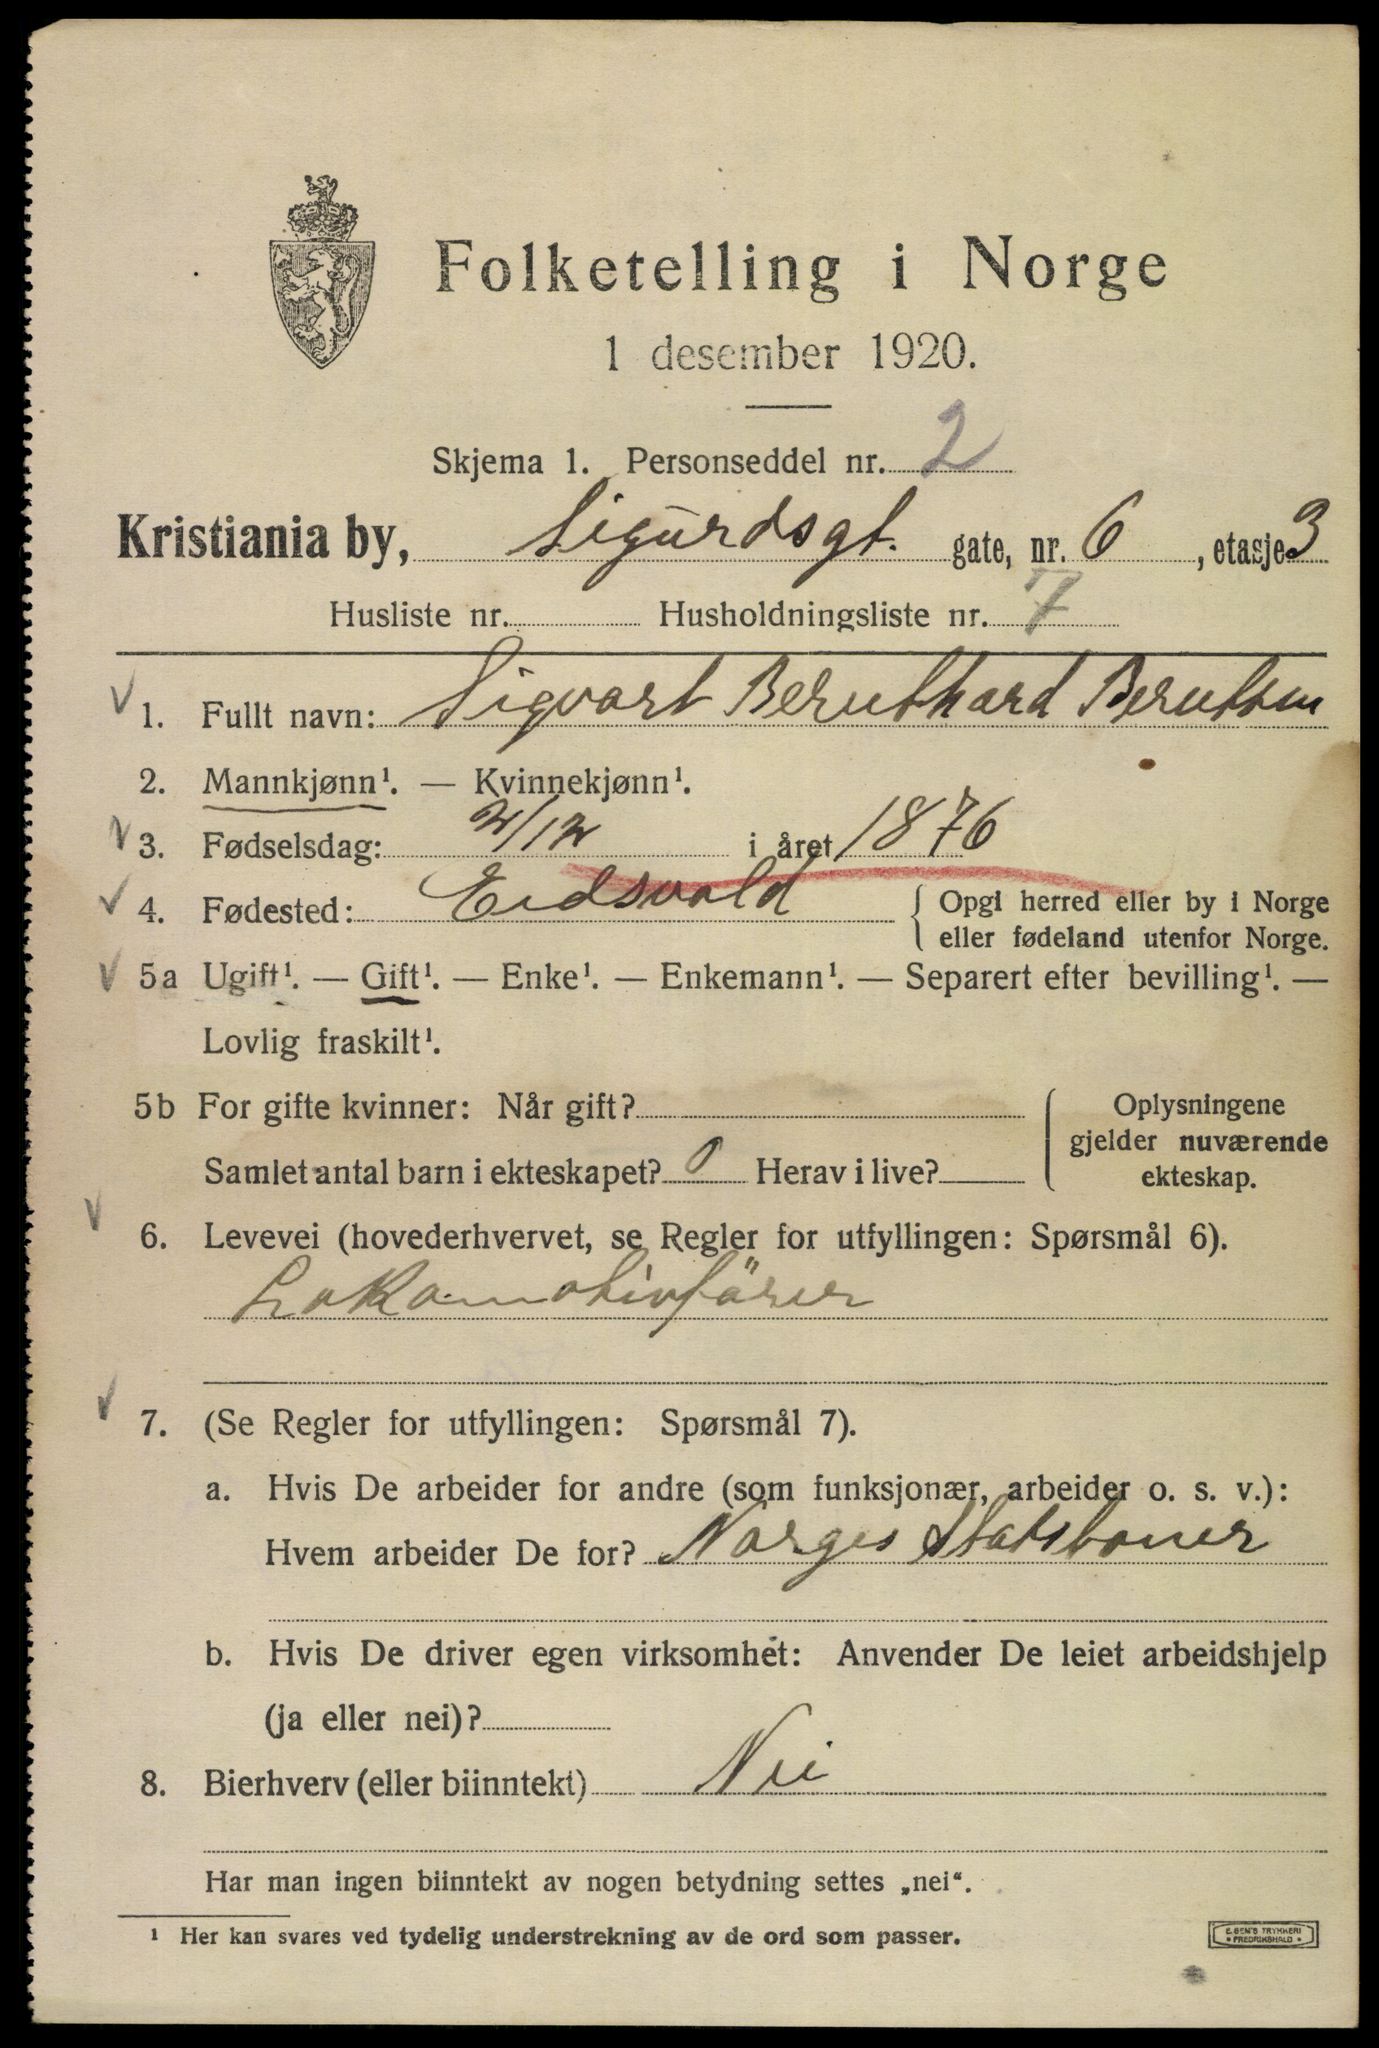 Folketelling i Norge
1 desember 1920.
Skjema 1. Personseddel nr. 2
Kristiania by, Sigurdsgt. gate, nr. 6, etasje 3
Husliste nr. Husholdningsliste nr. 7
1. Fullt navn: Sigvart Bernthard Berntsen
2. Mannkjønn¹. — Kvinnekjønn¹.
3. Fødselsdag: 2/12 i året 1876
4. Fødested: Eidsvold { Opgi herred eller by i Norge
eller fødeland utenfor Norge.
5a Ugift¹. — Gift¹. — Enke¹. — Enkemann¹. — Separert efter bevilling¹. —
Lovlig fraskilt¹.
5b For gifte kvinner: Når gift? { Oplysningene
gjelder nuværende
Samlet antal barn i ekteskapet? 0 Herav i live?
ekteskap.
6. Levevei (hovederhvervet, se Regler for utfyllingen: Spørsmål 6).
Lokomotivfører
7. (Se Regler for utfyllingen: Spørsmål 7).
a. Hvis De arbeider for andre (som funksjonær, arbeider o. s. v.):
Hvem arbeider De for? Norges Statsbaner
b. Hvis De driver egen virksomhet: Anvender De leiet arbeidshjelp
(ja eller nei)?
8. Bierhverv (eller biinntekt) Nei
Har man ingen biinntekt av nogen betydning settes „nei“.
¹ Her kan svares ved tydelig understrekning av de ord som passer.
TRYKKERI
FREDRIKSHALD